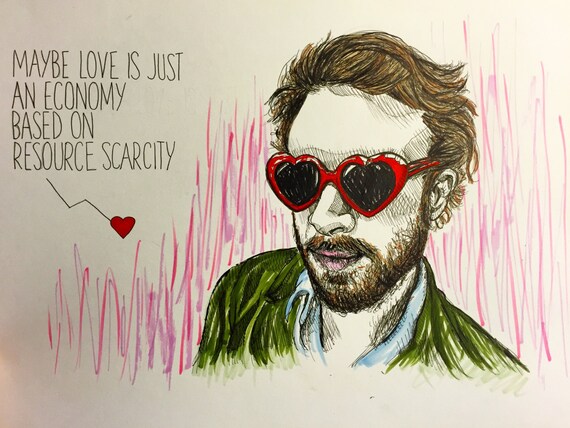 MAYBE LOVE IS JUST
AN ECONOMY
BASED ON
RESOURCE SCARCITY